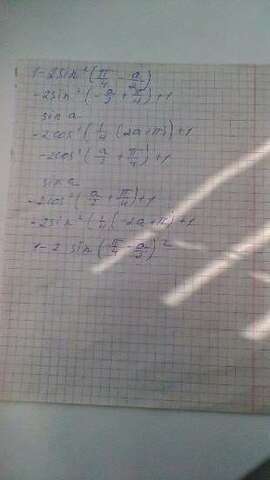 1-2sin²(π/4 - a/2)
-2sin²(-a/2 + π/4)+1
sin a
-2cos²(1/4 (2a+π))+1
-2cos²(a/2 + π/4)+1
sin a
-2cos²(a/2 + π/4)+1
-2sin²(1/4(-2a+π))+1
1-2 sin(π/4 - a/2)²